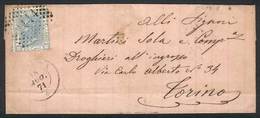 Alli Signori
Martini Sola e Comp.
Droghieri all'ingrosso
Via Carlo Alberto N° 34
Torino
71